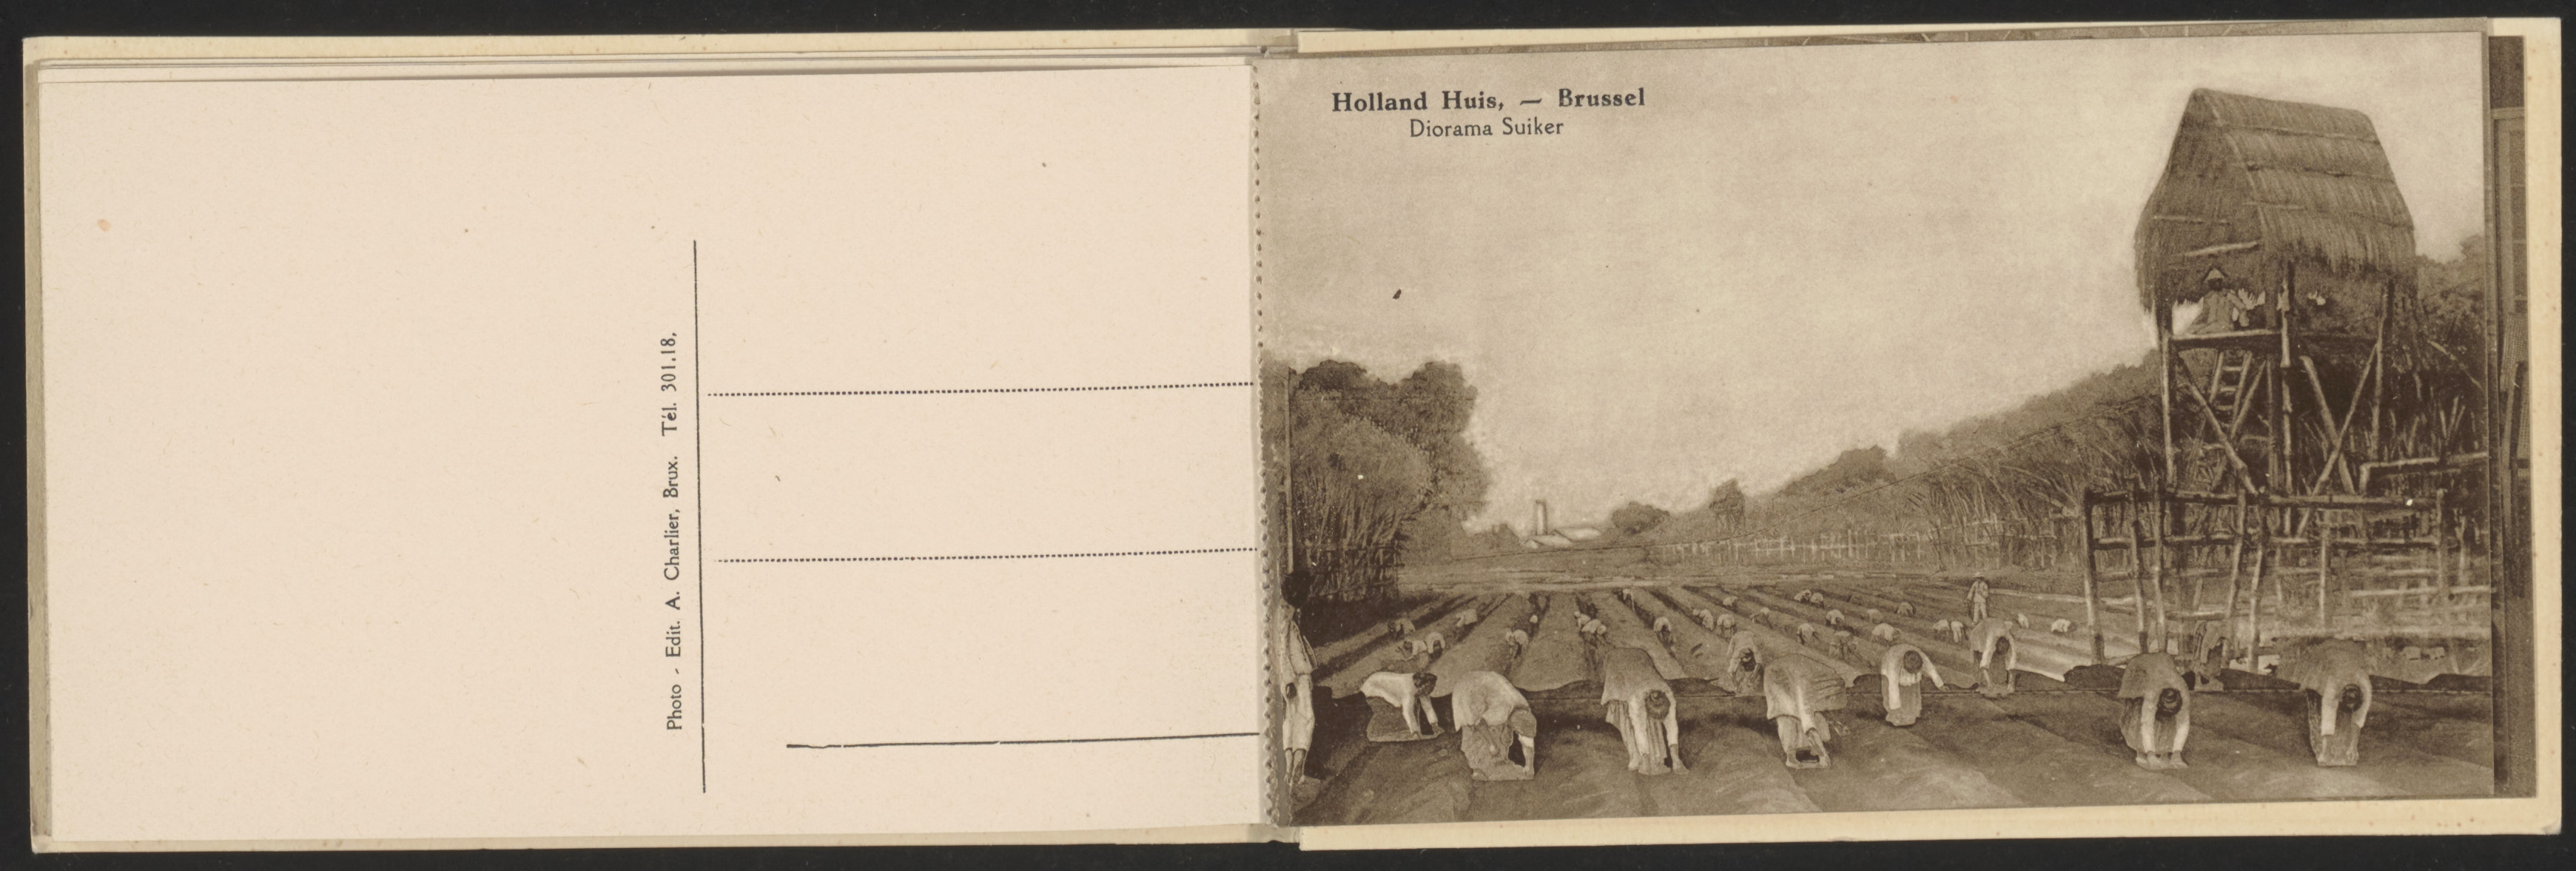 Photo - Edit. A. Charlier, Brux. Tél. 301.18.
Holland Huis, — Brussel
Diorama Suiker